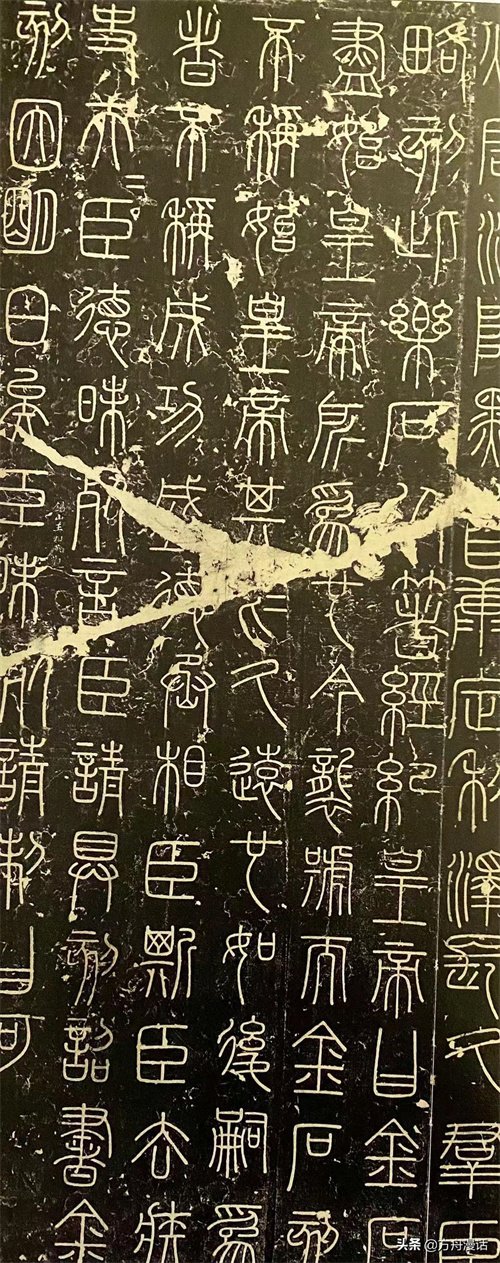 災害滅除黔首康定利澤長久群臣
略刻此樂石以著經紀皇帝曰金石
盡始皇帝所為也今襲號而金石刻
不稱始皇帝其於久遠也如後嗣為
者不稱成功盛德丞相臣斯臣去疾
史夫=臣德昧死言臣請具刻詔書金
刻因明白矣臣昧死請制曰可
头条 @方舟漫话